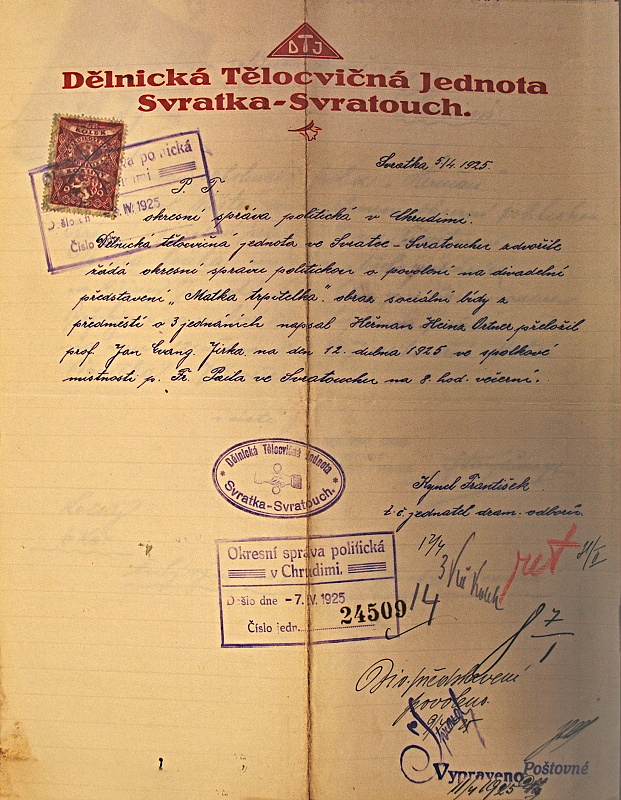 DTJ
Dělnická Tělocvičná Jednota
Svratka-Svratouch.
KOLEK
Svratka 5/4. 1925.
va politická
Chrudimi
Došlo dne IV. 1925
Číslo
P. T.
okresní správa politická v Chrudimi.
Dělnická tělocvičná jednota ve Svratce-Svratouchu zdvořile
žádá okresní správu politickou o povolení na divadelní
představení „Matka trpitelka". obraz sociální bídy z
předměstí o 3 jednáních napsal Heřman Heinz Ortner, přeložil
prof. Jan Evang. Jirka na den 12. dubna 1925 ve spolkové
místnosti p. Fr. ve Svratouchu na 8. hod. večerní.
Dělnická Tělocvičná Jednota
Svratka-Svratouch.
Kynel František
t. č. jednatel dram. odborů.
Okresní správa politická
v Chrudimi.
Došlo dne -7. IV. 1925
Číslo jedn. 24509
14
7
1
Div. představení
povoleno
Vypraveno Poštovné
11/4 1925